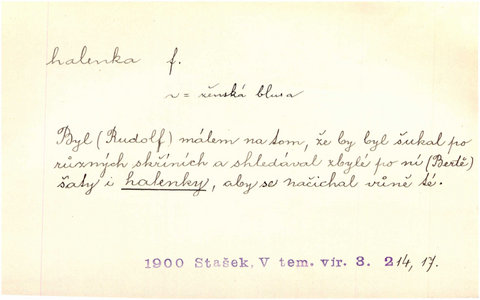 halenka f.
v = ženská blusa
Byl (Rudolf) málem na tom, že by byl šukal po
různých skříních a shledával zbylé po ní (Bertě)
šaty i halenky, aby se načichal vůně té.
1900 Stašek, V tem. vír. 3. 214, 17.